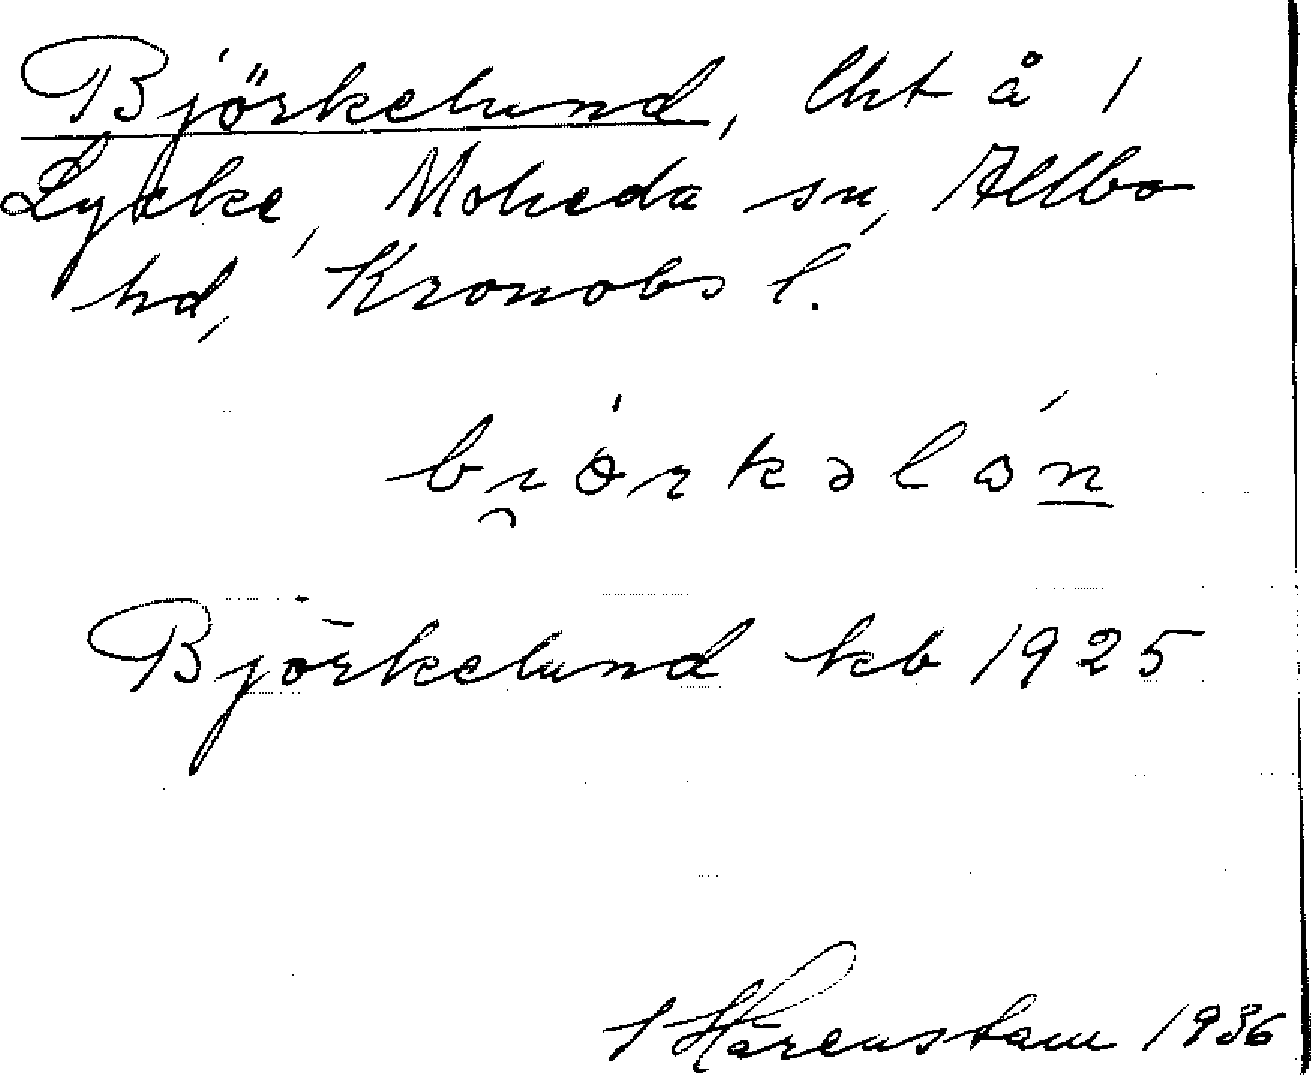 Björkelund, lht å 1
Lycke, Moheda sn, Allbo
hd, Kronobs l.
Björkelund kb 1925
Härenstam 1936